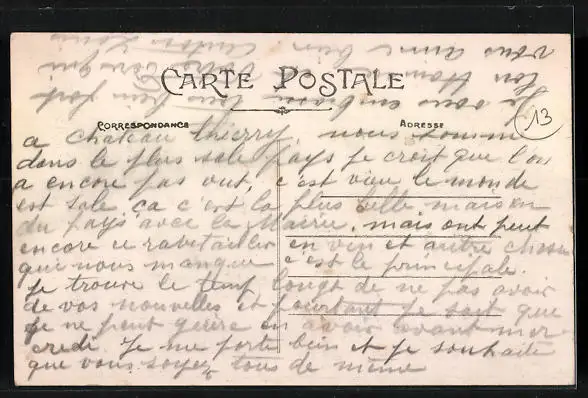 CARTE POSTALE
CORRESPONDANCE
ADRESSE
13
a chateau thierry, nous somme
dans le plus sale pays je croit que l'on
a encore pas vut, c'est vieu le monde
est sale ça c'est la plus belle maison
du pays avec la Mairie, mais ont peut
encore ce ravitailler en vin et autre chose
qui nous manque c'est le principale.
je trouve le temp longt de ne pas avoir
de vos nouvelles et pourtant je sait que
je ne peut guère en avoir avant mer
credi. Je me porte bien et je souhaite
que vous soyez tous de même
Je vous embrasse tous bien fort
ton Mari votre fils qui
vous aime bien
Louis